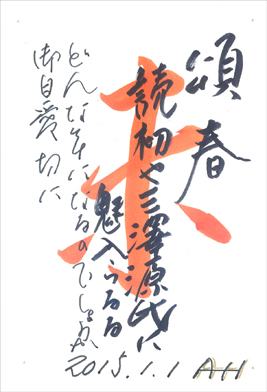 頌春
読初や三澤源氏に
魅入らるる
どんな年になるのでしょうか
御自愛切に
2015.1.1 AH